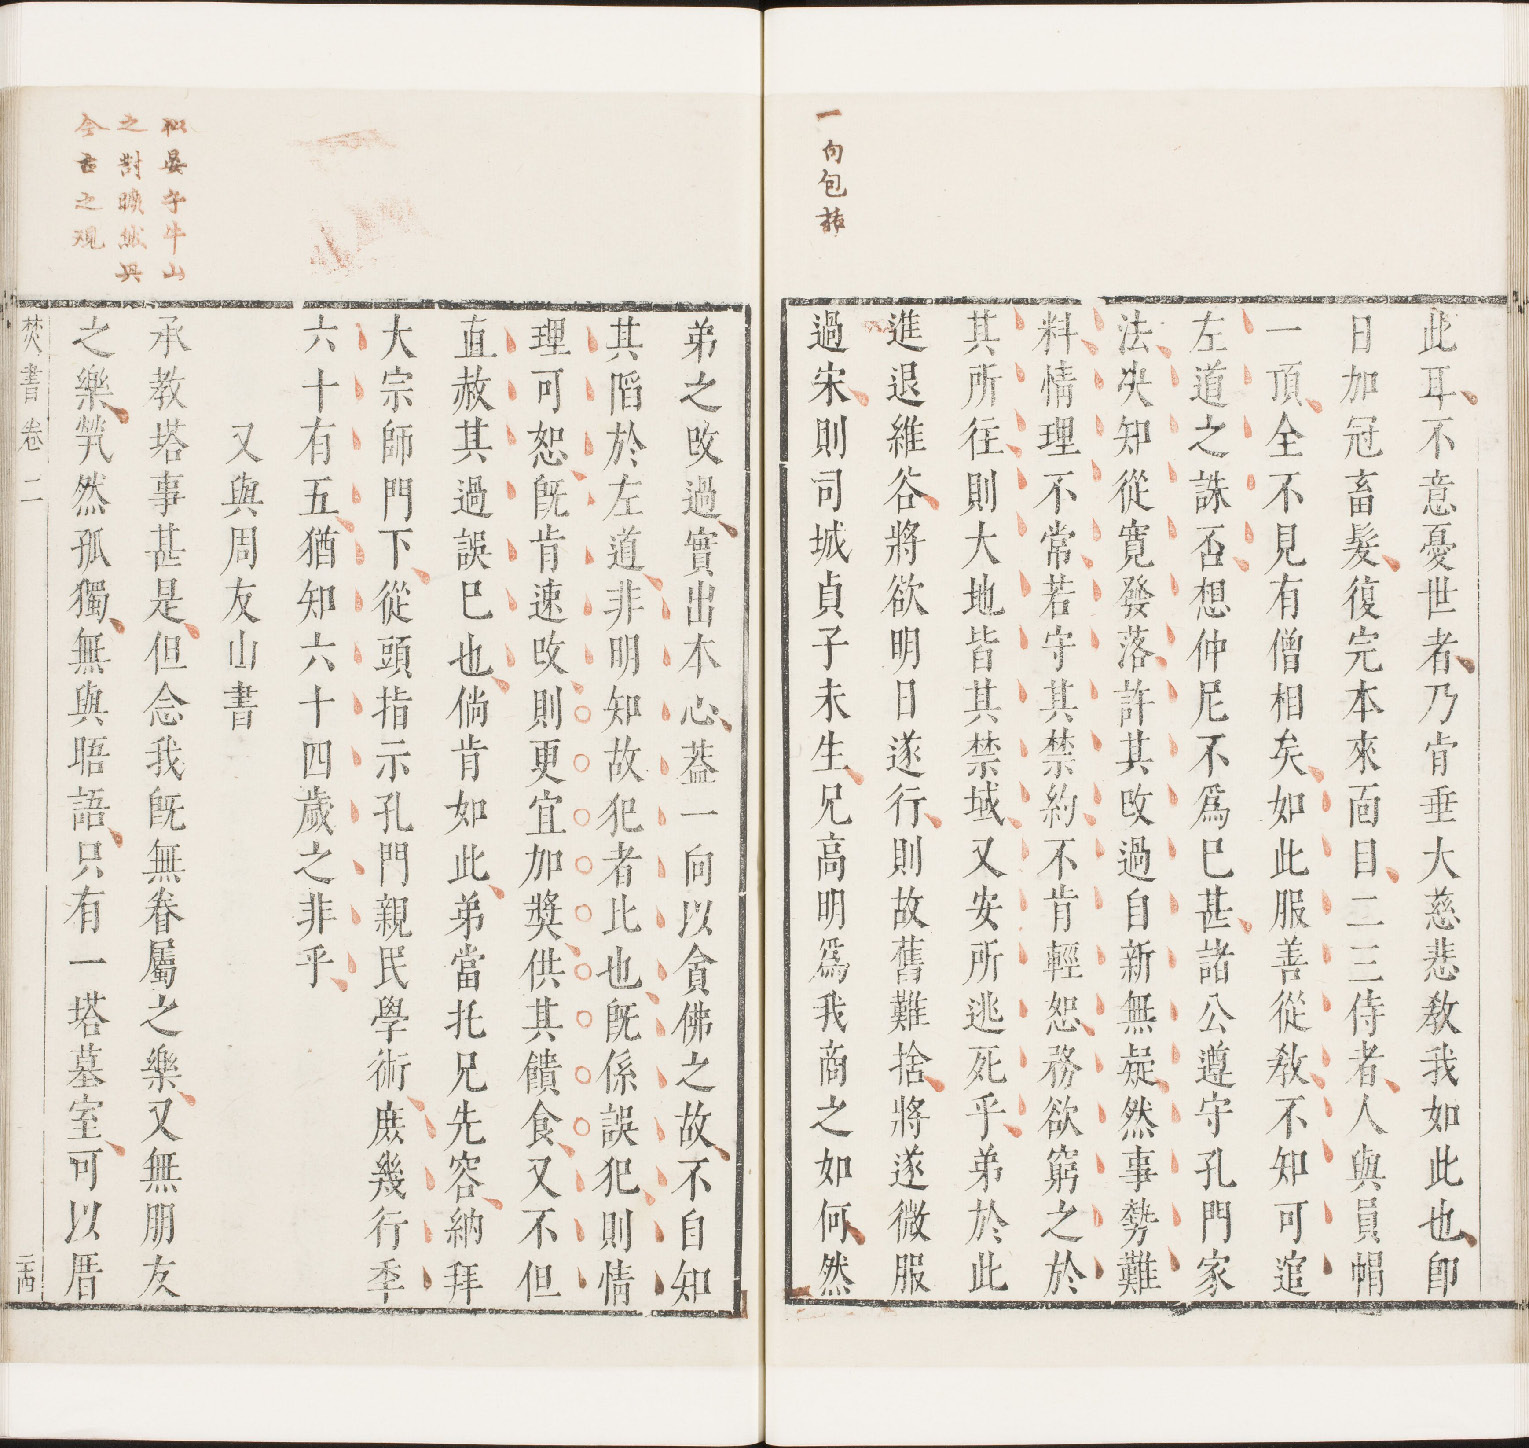 一向包
此耳不意憂世者乃肯垂大慈悲敎我如此也卽
日加冠畜髮復完本來面目二三侍者人與員帽
一頂全不見有僧相矣如此服善從敎不知可逭
左道之誅否想仲尼不爲巳甚諸公遵守孔門家
法决知從寛發落許其攺過自新無疑然事勢難
料情理不常若守其禁約不肯輕恕務欲窮之於
其所徃則大地皆其禁域又安所逃死乎弟於此
進退維谷將欲明日遂行則故舊難捨將遂微服
過宋則司城貞子未生兄高明爲我商之如何然
弟之攺過實出本心葢一向以貪佛之故不自知
其䧟於左道非明知故犯者比也旣係誤犯則情
理可恕旣肯速攺則更宜加奬供其饋食又不但
直赦其過誤巳也倘肯如此弟當托兄先容納拜
大宗師門下從頭指示孔門親民學術庶幾行季
六十有五猶知六十四歲之非乎
又與周友山書
承教塔事甚是但念我旣無眷屬之樂又無朋友
之樂煢然孤獨無與晤語只有一塔墓室可以厝
焚書 卷二
二四
似晏子牛山
之對曠然與
今古之观